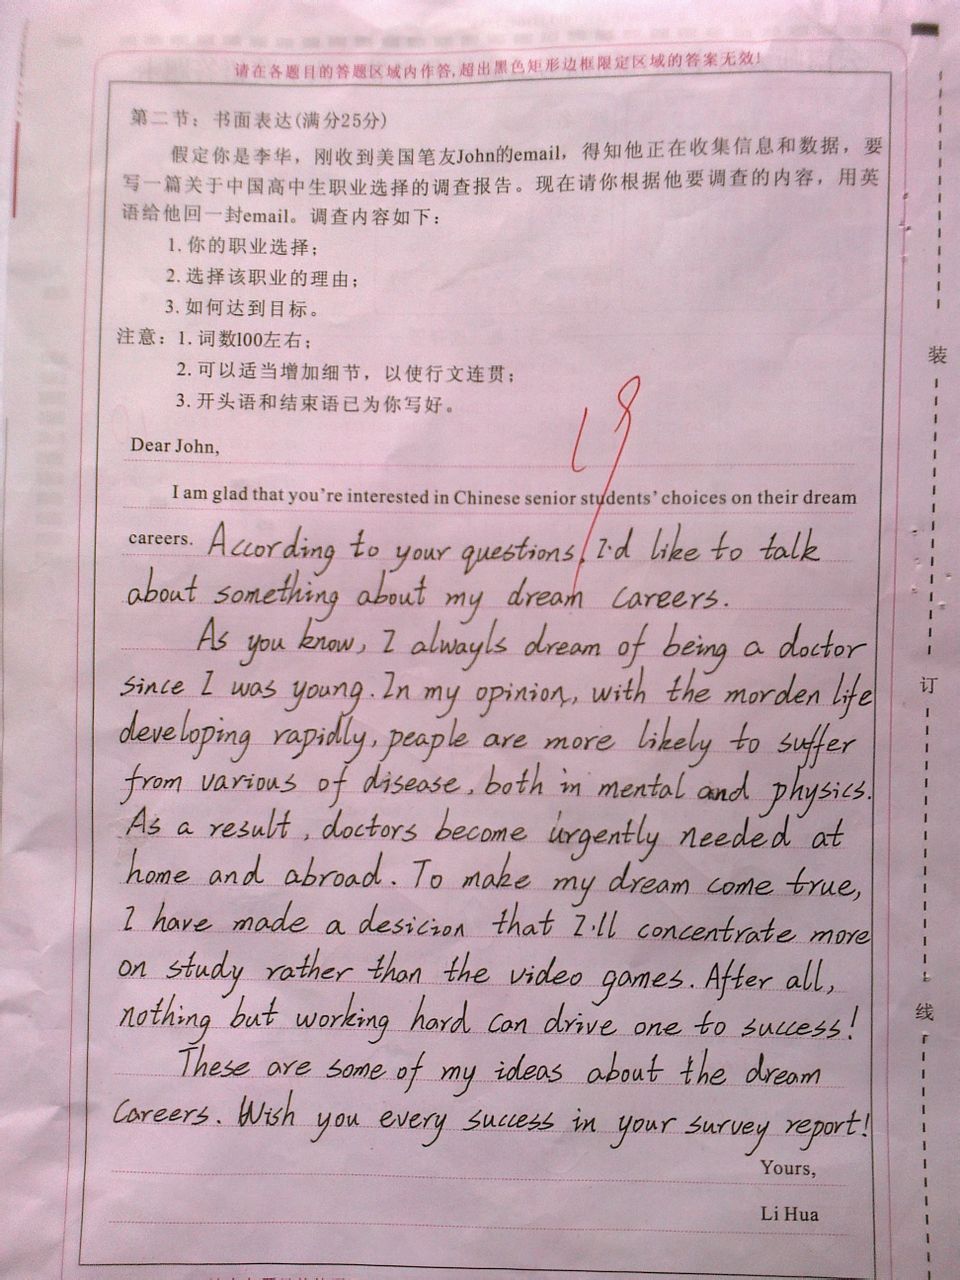 请在各题目的答题区域内作答,超出黑色矩形边框限定区域的答案无效!
第二节：书面表达(满分25分)
假定你是李华，刚收到美国笔友John的email，得知他正在收集信息和数据，要
写一篇关于中国高中生职业选择的调查报告。现在请你根据他要调查的内容，用英
语给他回一封email。调查内容如下：
1.你的职业选择；
2.选择该职业的理由；
3.如何达到目标。
注意：1.词数100左右；
2.可以适当增加细节，以使行文连贯；
3.开头语和结束语已为你写好。
19
Dear John,
I am glad that you're interested in Chinese senior students' choices on their dream
careers. According to your questions, I'd like to talk
about something about my dream careers.
As you know, I alwayls dream of being a doctor
since I was young. In my opinion, with the morden life
developing rapidly, peaple are more likely to suffer
from various of disease, both in mental and physics.
As a result, doctors become urgently needed at
home and abroad. To make my dream come true,
I have made a desicion that I'll concentrate more
on study rather than the video games. After all,
nothing but working hard can drive one to success!
These are some of my ideas about the dream
careers. Wish you every success in your survey report!
Yours,
Li Hua
装
订
线